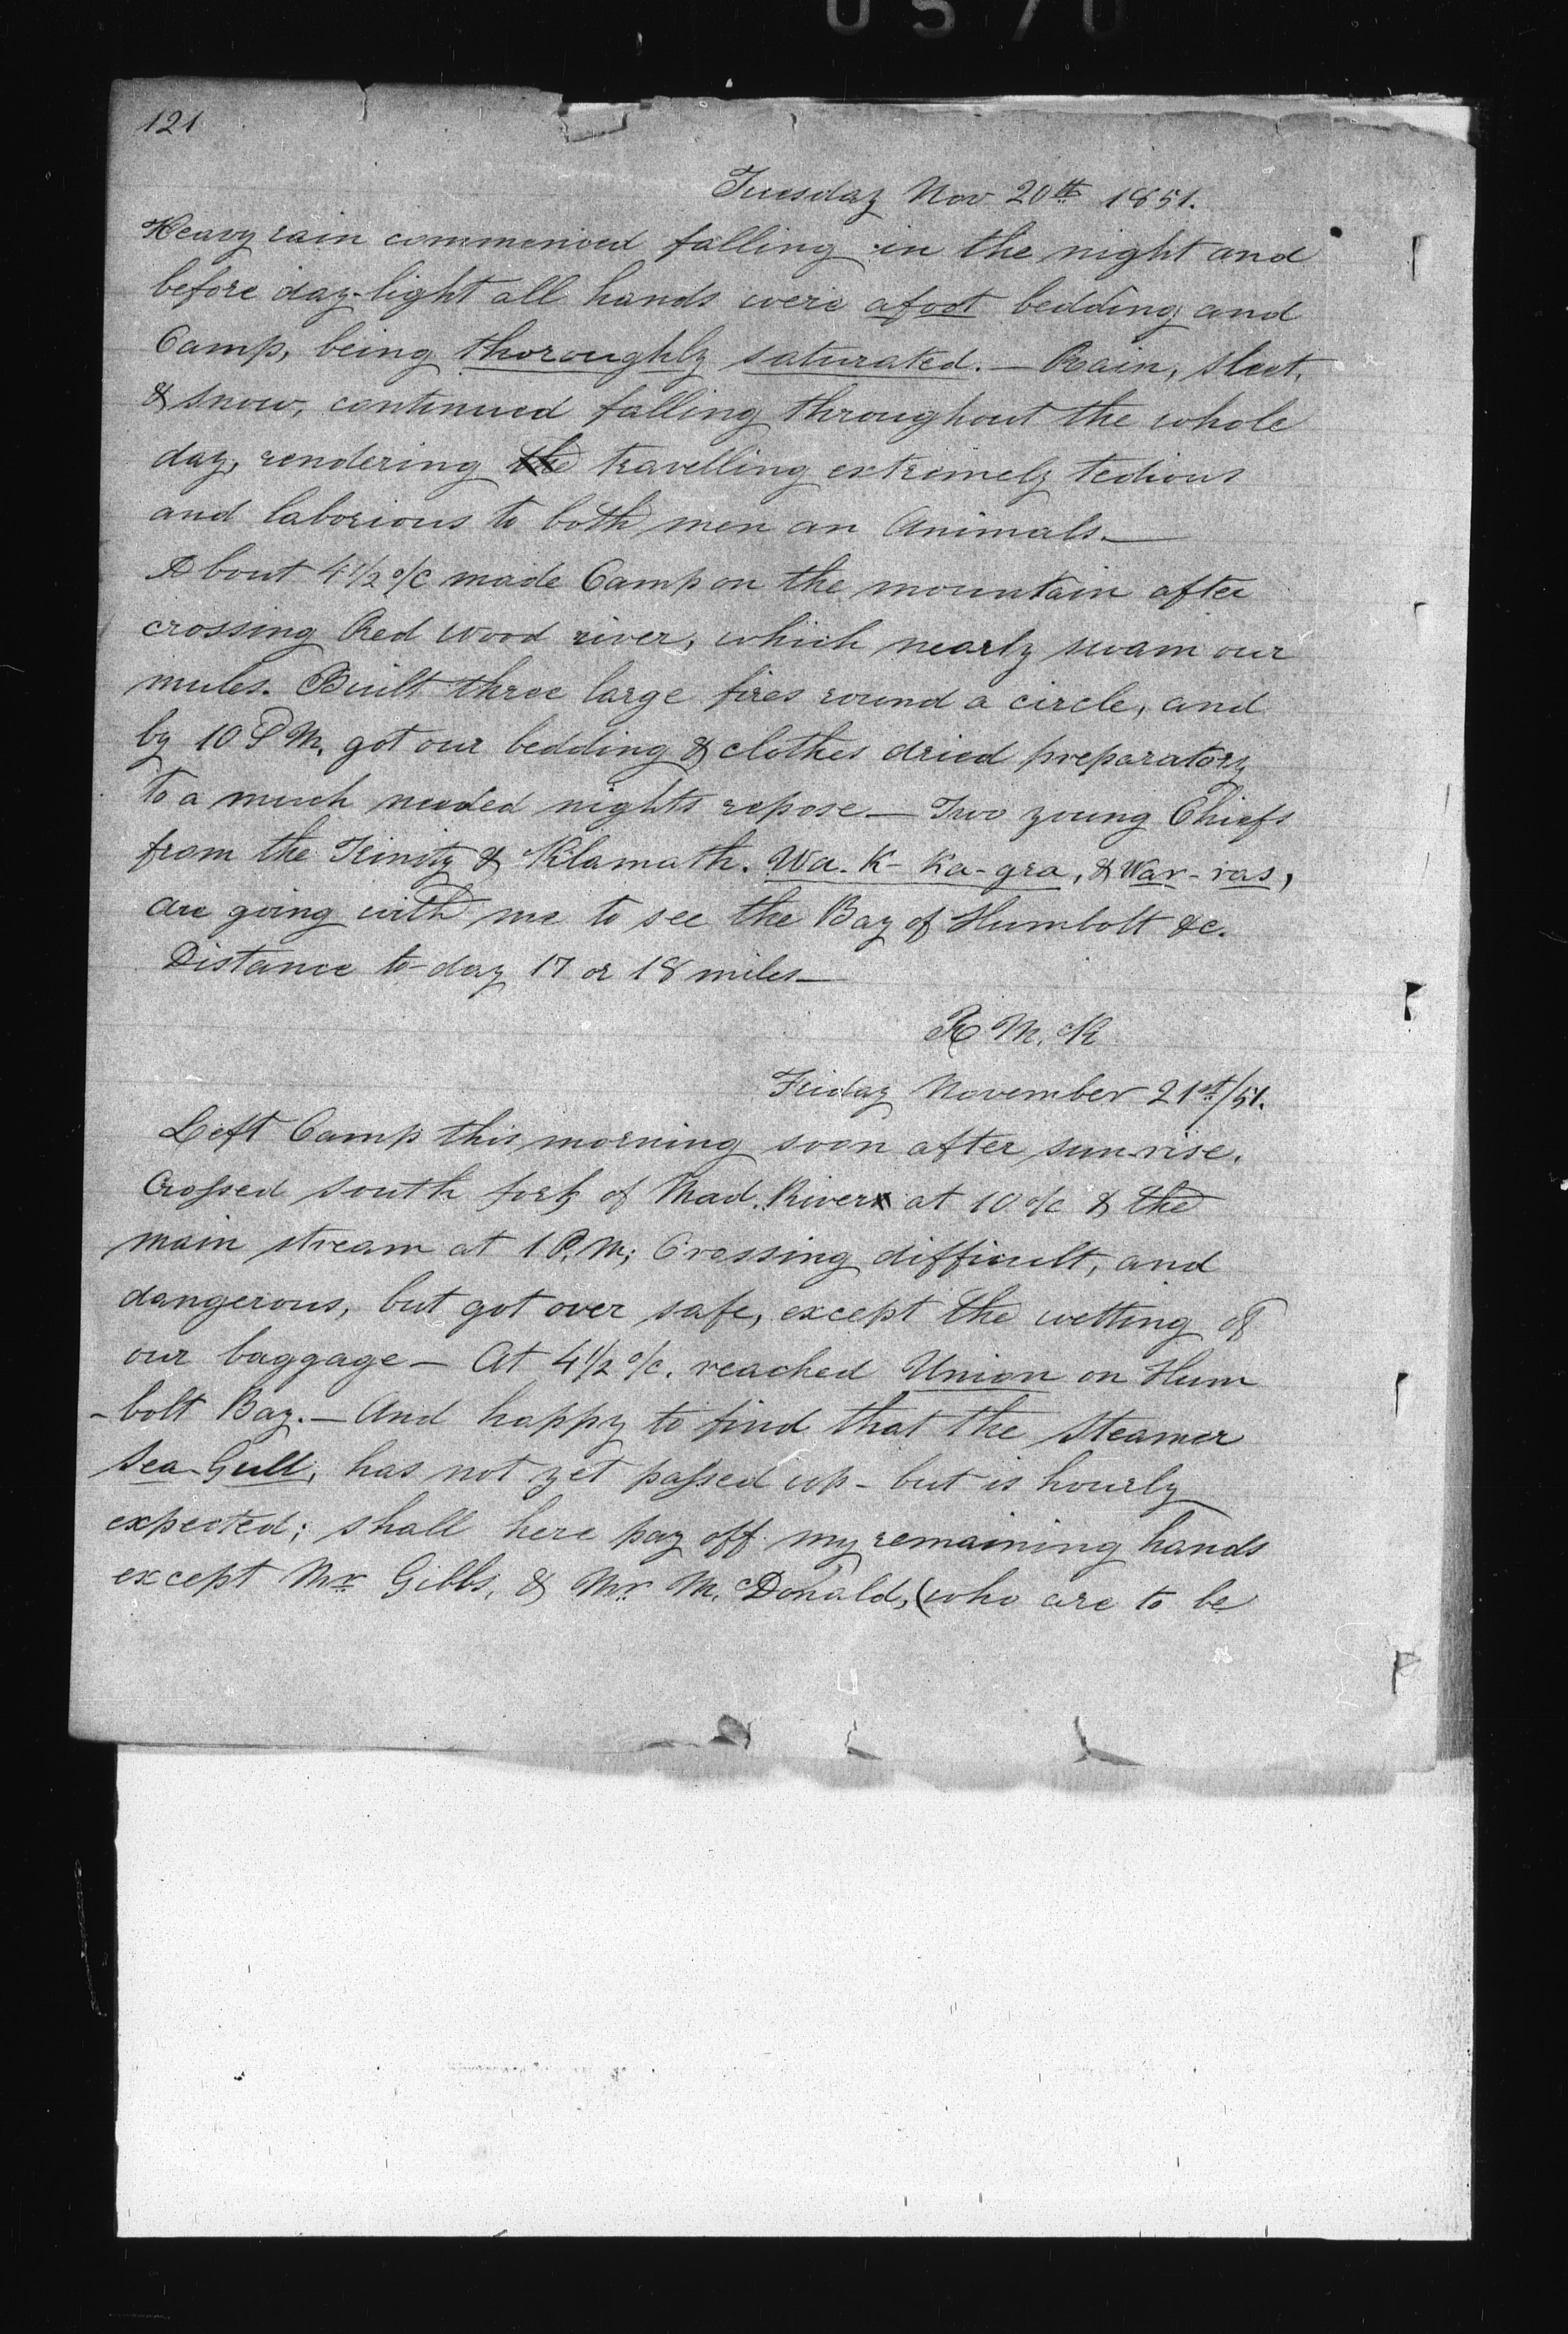 0570
121
Tuesday Nov 20th 1851.
Heavy rain commenced falling in the night and
before day-light all hands were afoot bedding and
Camp, being thoroughly saturated. — Rain, sleet,
& snow, continued falling throughout the whole
day, rendering the travelling extremely tedious
and laborious to both men an Animals. —
About 4 1/2 o/c made Camp on the mountain after
crossing Red wood river, which nearly swam our
mules. Built three large fires round a circle, and
by 10 P M, got our bedding & clothes dried preparatory
to a much needed nights repose — Two young Chiefs
from the Trinity & Klamath. Wa-K-Ka-gra, & War-ras,
are going with me to see the Bay of Humbolt &c.
Distance to-day 17 or 18 miles —
R M. cK
Friday November 21st/51.
Left Camp this morning soon after sun-rise.
Crossed south fork of Mad. River at 10 o/c & the
main stream at 1 P. M; Crossing difficult, and
dangerous, but got over safe, except the wetting of
our baggage — At 4 1/2 o/c. reached Union on Hum
-bolt Bay. — And happy to find that the Steamer
Sea-Gull, has not yet passed up - but is hourly
expected; shall here pay off my remaining hands
except Mr Gibbs, & Mr. M. cDonald, (who are to be